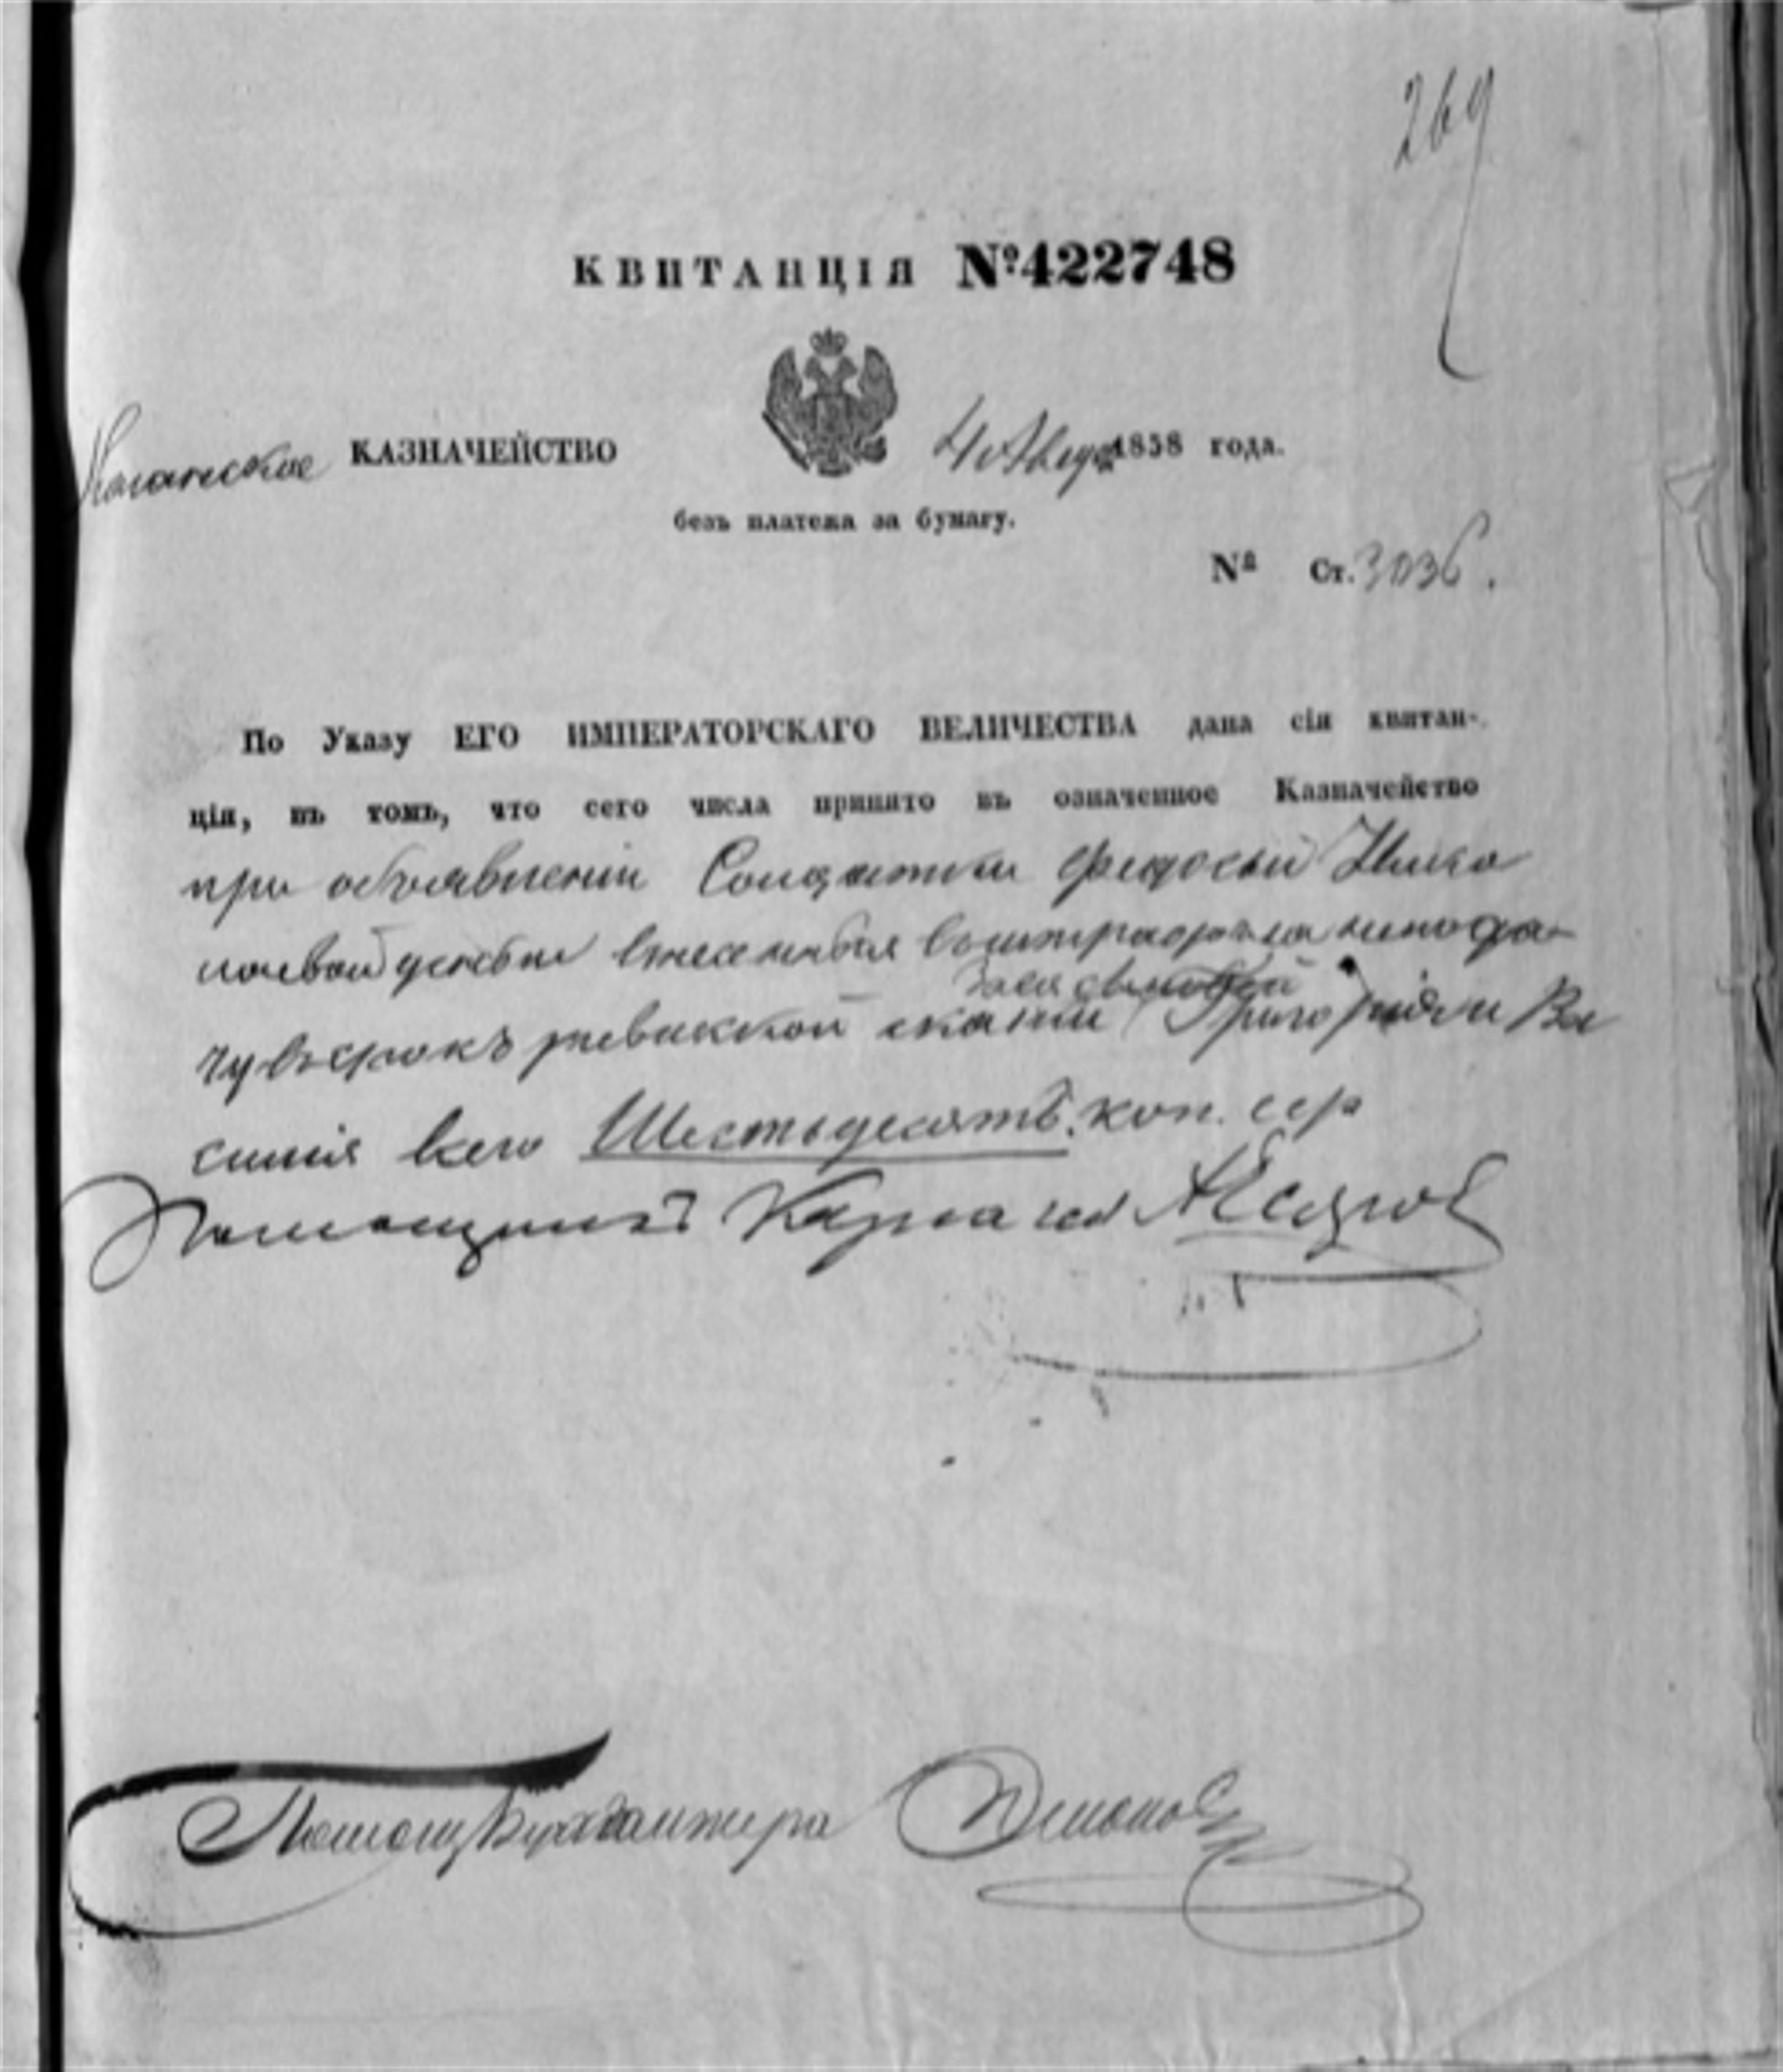 269
КВИТАНЦІЯ №422748
КАЗНАЧЕЙСТВО 4 Авгус 1858 года.
безъ платежа за бумагу.
№ Ст. 3036.
По Указу ЕГО ИМПЕРАТОРСКАГО ВЕЛИЧЕСТВА дана сія квитан-
ція, въ томъ, что сего числа принято въ означенное Казначейство
при объявленіи Солдатки Федосьи Нико
лаевой
за ея сыновей
ревизской сказки Григорія и Ва
силія всего Шестьдесятъ коп. сер
Помощникъ Казначея
Помощ Бухгалтера